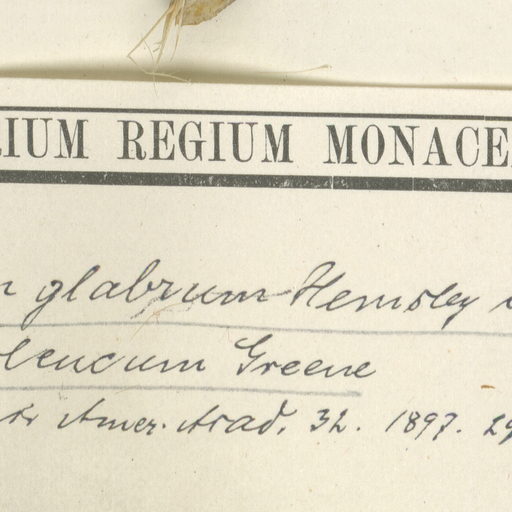 RIUM REGIUM MONACE
n glabrum Hemsley v
leucum Greene
Amer. Acad. 32. 1897. 29